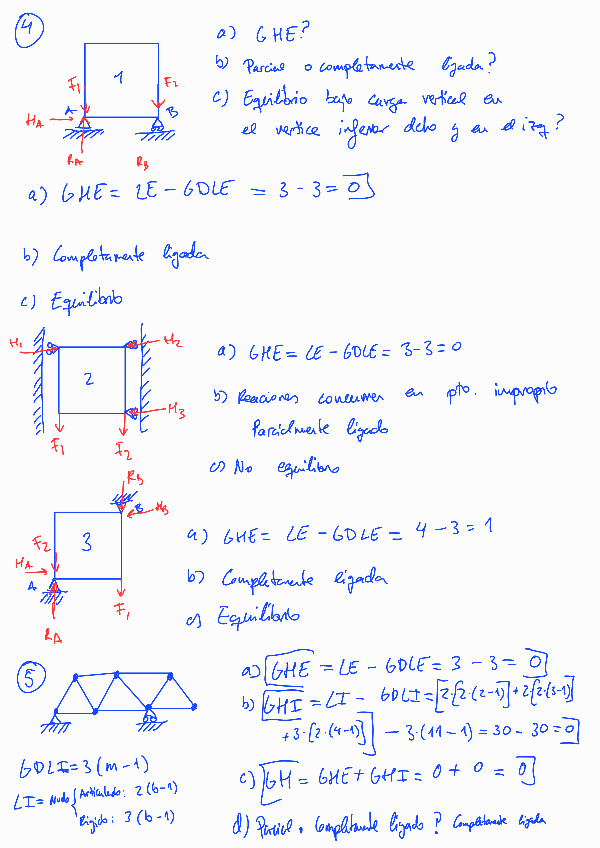 4
a) GHE?
b) Parcial o completamente ligada?
c) Equilibrio bajo carga vertical en
el vertice inferior dcho y en el izq?
1
F1
F2
A
B
HA
RA
RB
a) GHE = LE - GDLE = 3 - 3 = 0
b) Completamente ligada
c) Equilibrio
H1
H2
2
H3
F1
F2
a) GHE = LE - GDLE = 3-3 = 0
b) Reacciones concurren en pto. impropio
Parcialmente ligado
c) No equilibrio
RB
B
HB
3
F2
HA
A
F1
RA
a) GHE = LE - GDLE = 4 - 3 = 1
b) Completamente ligada
c) Equilibrio
5
a) GHE = LE - GDLE = 3 - 3 = 0
b) GHI = LI - GDLI = [2·[2·(2-1)] + 2[2·(3-1)]
+ 3·[2·(4-1)]] - 3·(11-1) = 30 - 30 = 0
GDLI = 3(m-1)
LI = Nudo { Articulado: 2(b-1)
Rígido: 3(b-1)
c) GH = GHE + GHI = 0 + 0 = 0
d) Parcial o Completamente ligado? Completamente ligada